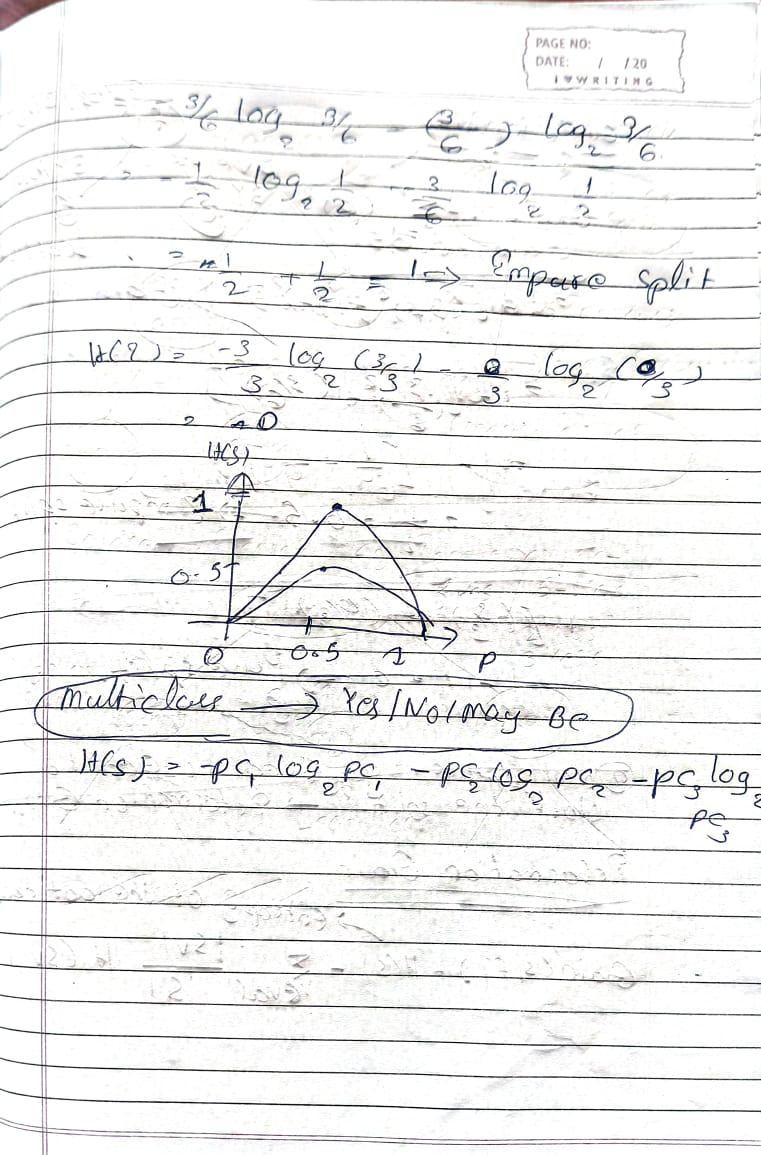 PAGE NO:
DATE: / /20
I ♥ WRITING
= -3/6 log₂ 3/6 - (3/6) log₂ 3/6
= -1/2 log₂ 1/2 - 3/6 log₂ 1/2
= 1/2 + 1/2 = 1 → Empure split
H(2) = -3/3 log₂ (3/3) - 0/3 log₂ (0/3)
= 0
H(S)
1
0.5
0 0.5 1 P
Multiclass → Yes/No/May Be
H(S) = -pc₁ log₂ pc₁ - pc₂ log₂ pc₂ - pc₃ log₂
pc₃